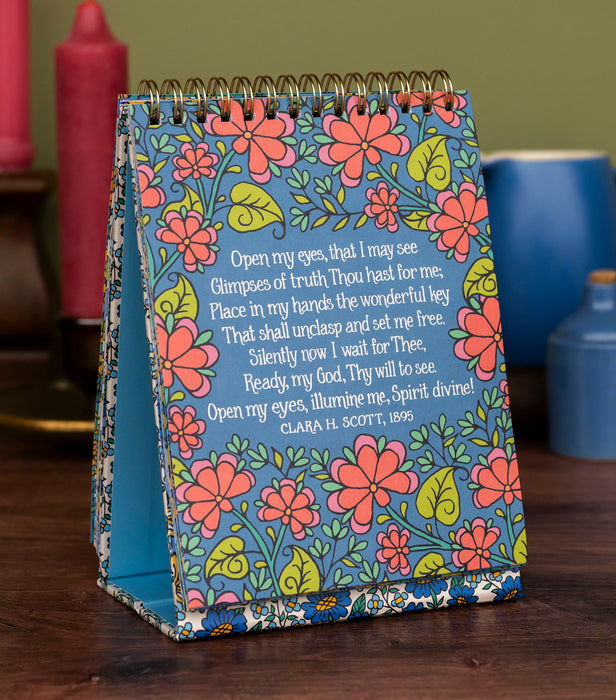 Open my eyes, that I may see
Glimpses of truth Thou hast for me;
Place in my hands the wonderful key
That shall unclasp and set me free.
Silently now I wait for Thee,
Ready, my God, Thy will to see.
Open my eyes, illumine me, Spirit divine!
CLARA H. SCOTT, 1895